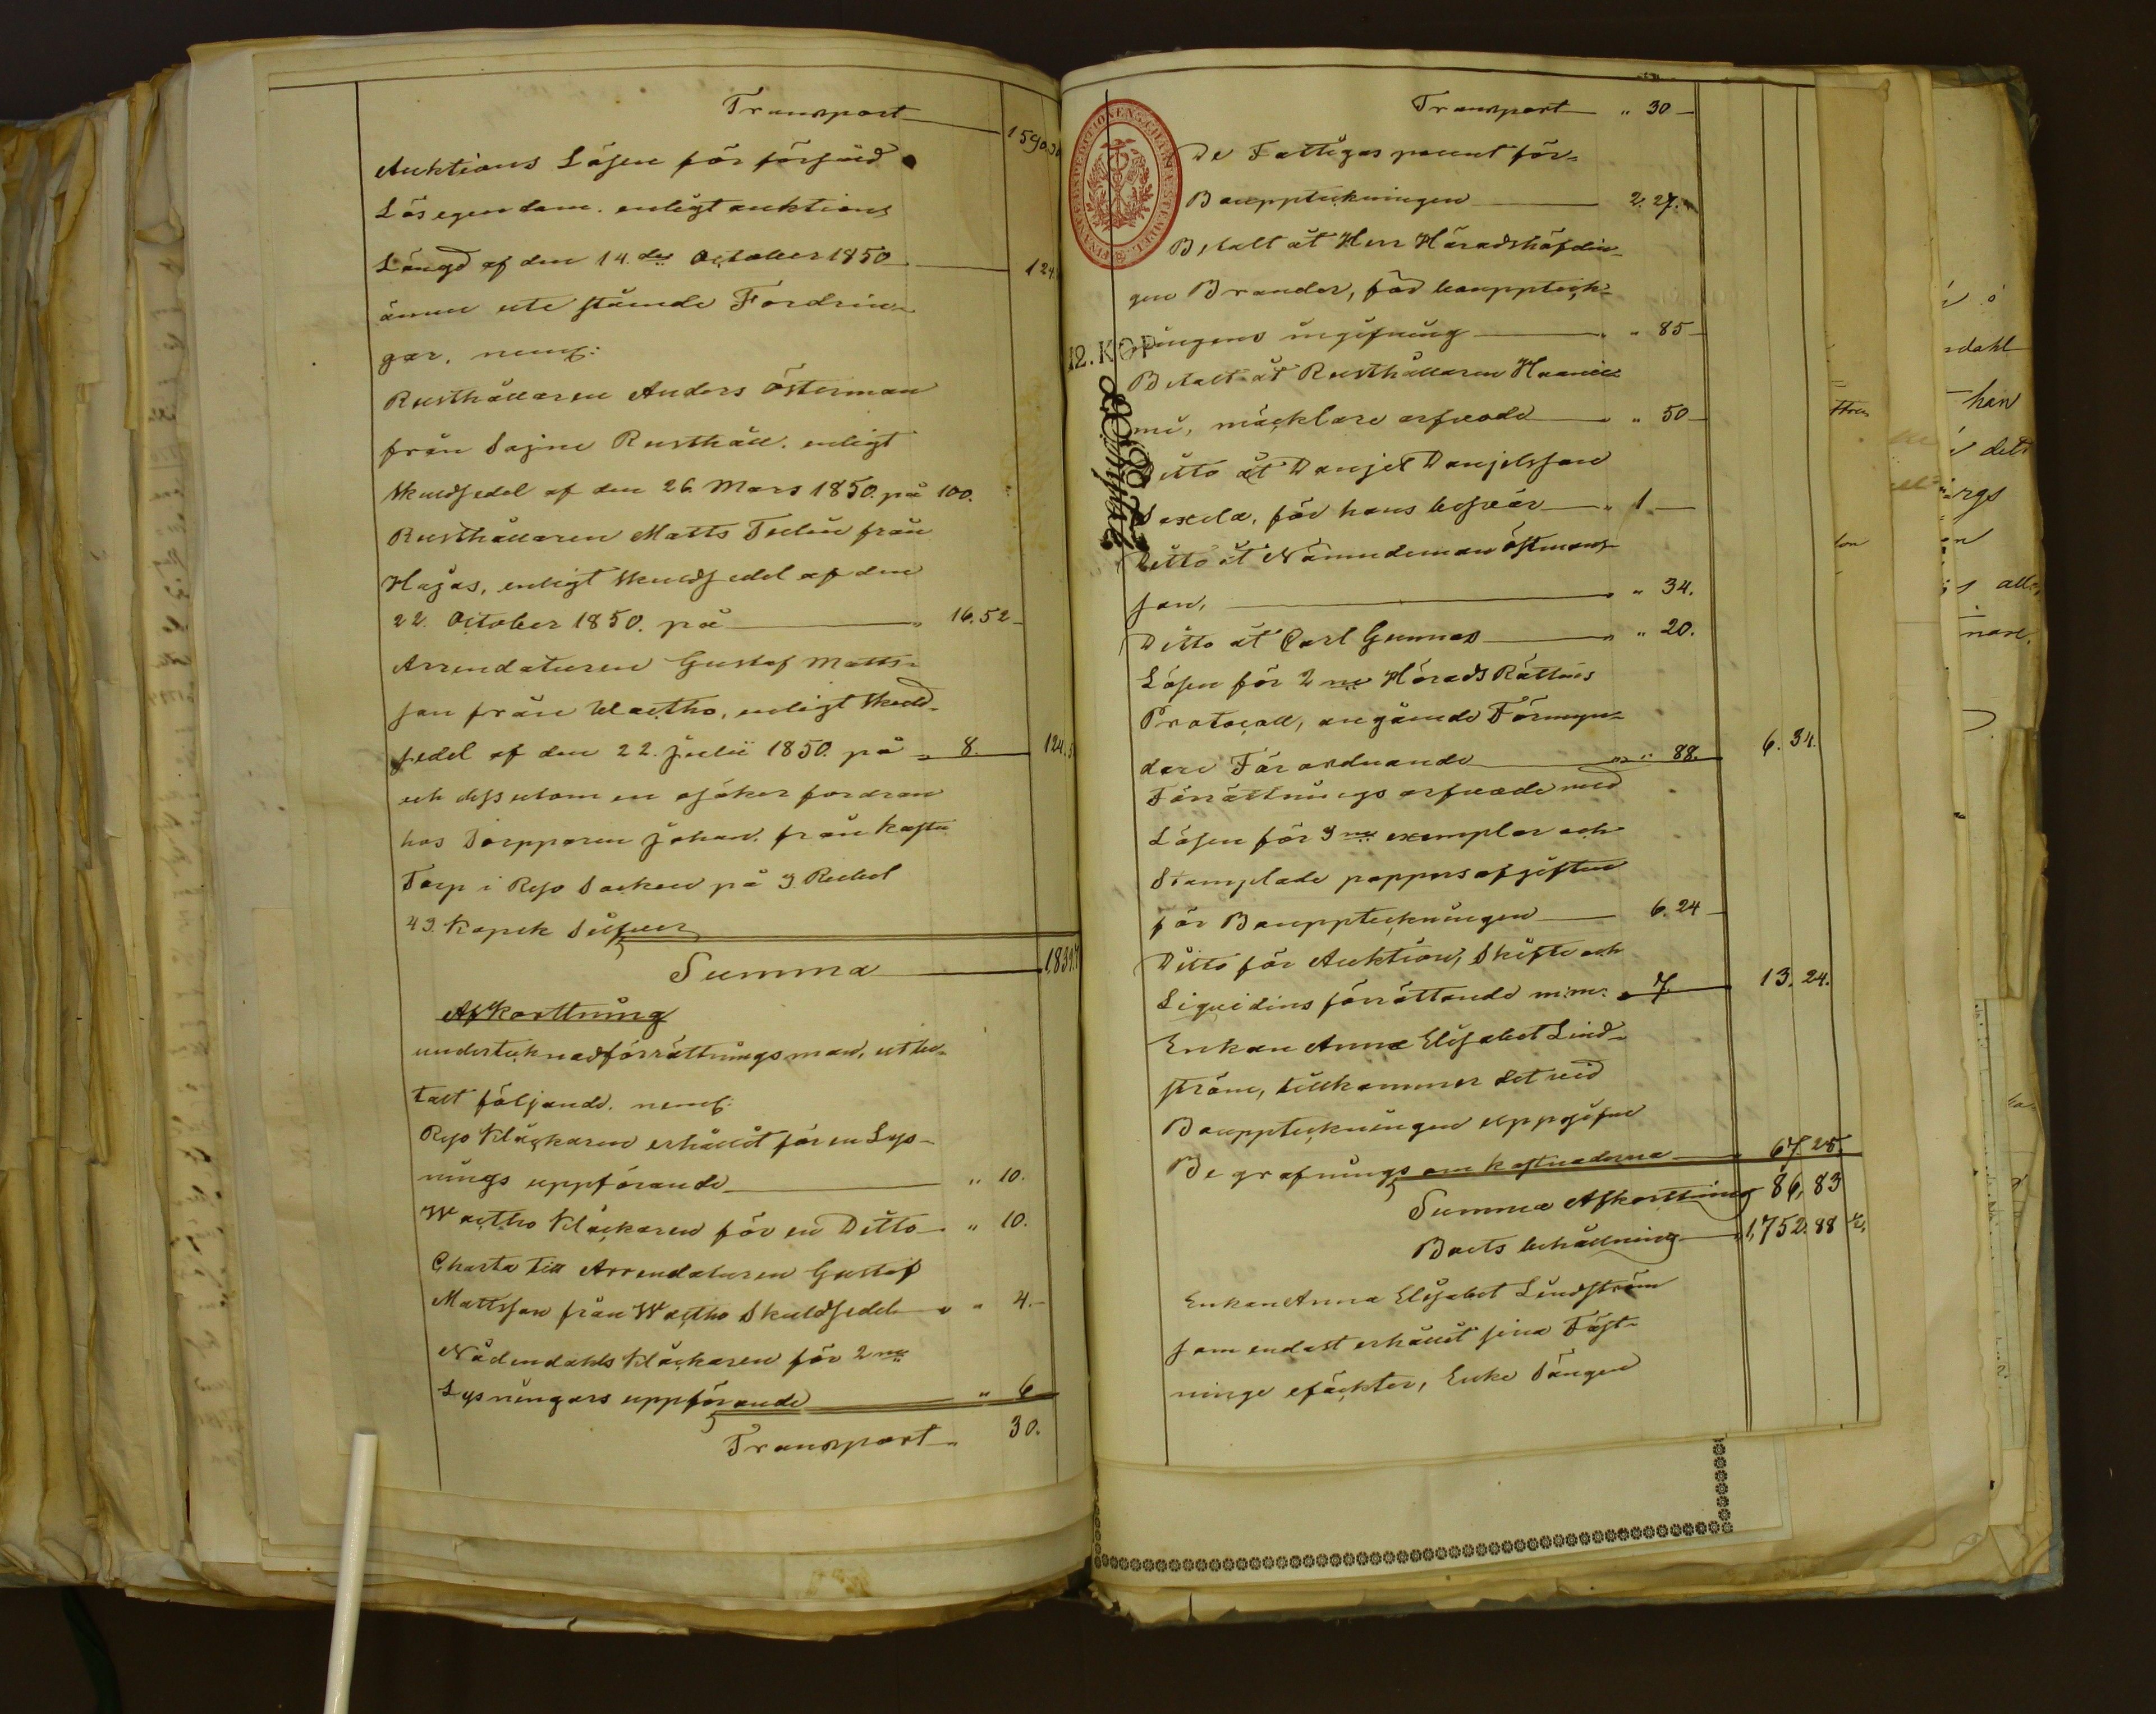 Transport 1590.
Auktions Lösen för försåld
Lösegendom. enligt auktions
Längd af den 14.de October 1850 124.
ännu ute stående Fordrin-
gar, neml:
Rusthållaren Anders Österman
från Rusthåll. enligt
Skuldsedel af den 26. Mars 1850. på 100.
Rusthållaren Matts från
Hajas, enligt skuldsedel af den
22. October 1850. på 16.52
Arrendatoren Gustaf Matts-
son från Waetho, enligt skuld-
sedel af den 22. Julii 1850. på " 8. 124.
och dessutom en osäker fordran
hos Torpparen Johan. från
Torp i Rejo Socken på 3 Rubel
43. Kopek Silfver
Summa 1,839.
Afkorttning
undertecknad förrättningsman, utbe-
talt följande. neml:
Rejo Kläckaren erhållit för en Lys-
nings uppförande " 10.
Waetho Kläckaren för en Ditto " 10.
Charta till Arrendatoren Gustaf
Mattsson från Waetho Skuldsedel " 4.
Nådendahls Kläckaren för 2ne
Lysningars uppförande " 6
Transport 30.
Transport " 30
De Fattigas procent för
Bouppteckningen 2. 27.
Betalt åt Herr Häradshöfdin-
gen Brander, för bouppteck-
ningens ingifning " 85
Betalt åt Rusthållaren
mäcklare arfvode " 50
Ditto åt Danjel Danjelsson
för hans besvär " 1
Ditto åt Nämndeman Östmans-
son, " 34.
Ditto åt Carl Gunnas " 20.
Lösen för 2ne Härads Rättens
Protocoll, angående Förmyn-
dare Förordnande " 88. 6. 34.
Förrättnings arfvode med
Lösen för 3ne exemplar och
Stamplade pappersafgiften
för Bouppteckningen 6. 24
Ditto för Auktion, Skifte och
Liquidins förrättande m:m: " 7. 13. 24.
Enkan Anna Elisabet Lind-
ström, tillkommer det vid
Bouppteckningen uppgifne
Begrafnings omkostnaderna 67. 25.
Summa Afkorttning 86, 83
Boets behållning 1,752. 88
Enkan Anna Elisabet Lindström
som endast erhållit sina Fäst-
ninge efäckter, Enke Sängen
12. KOP